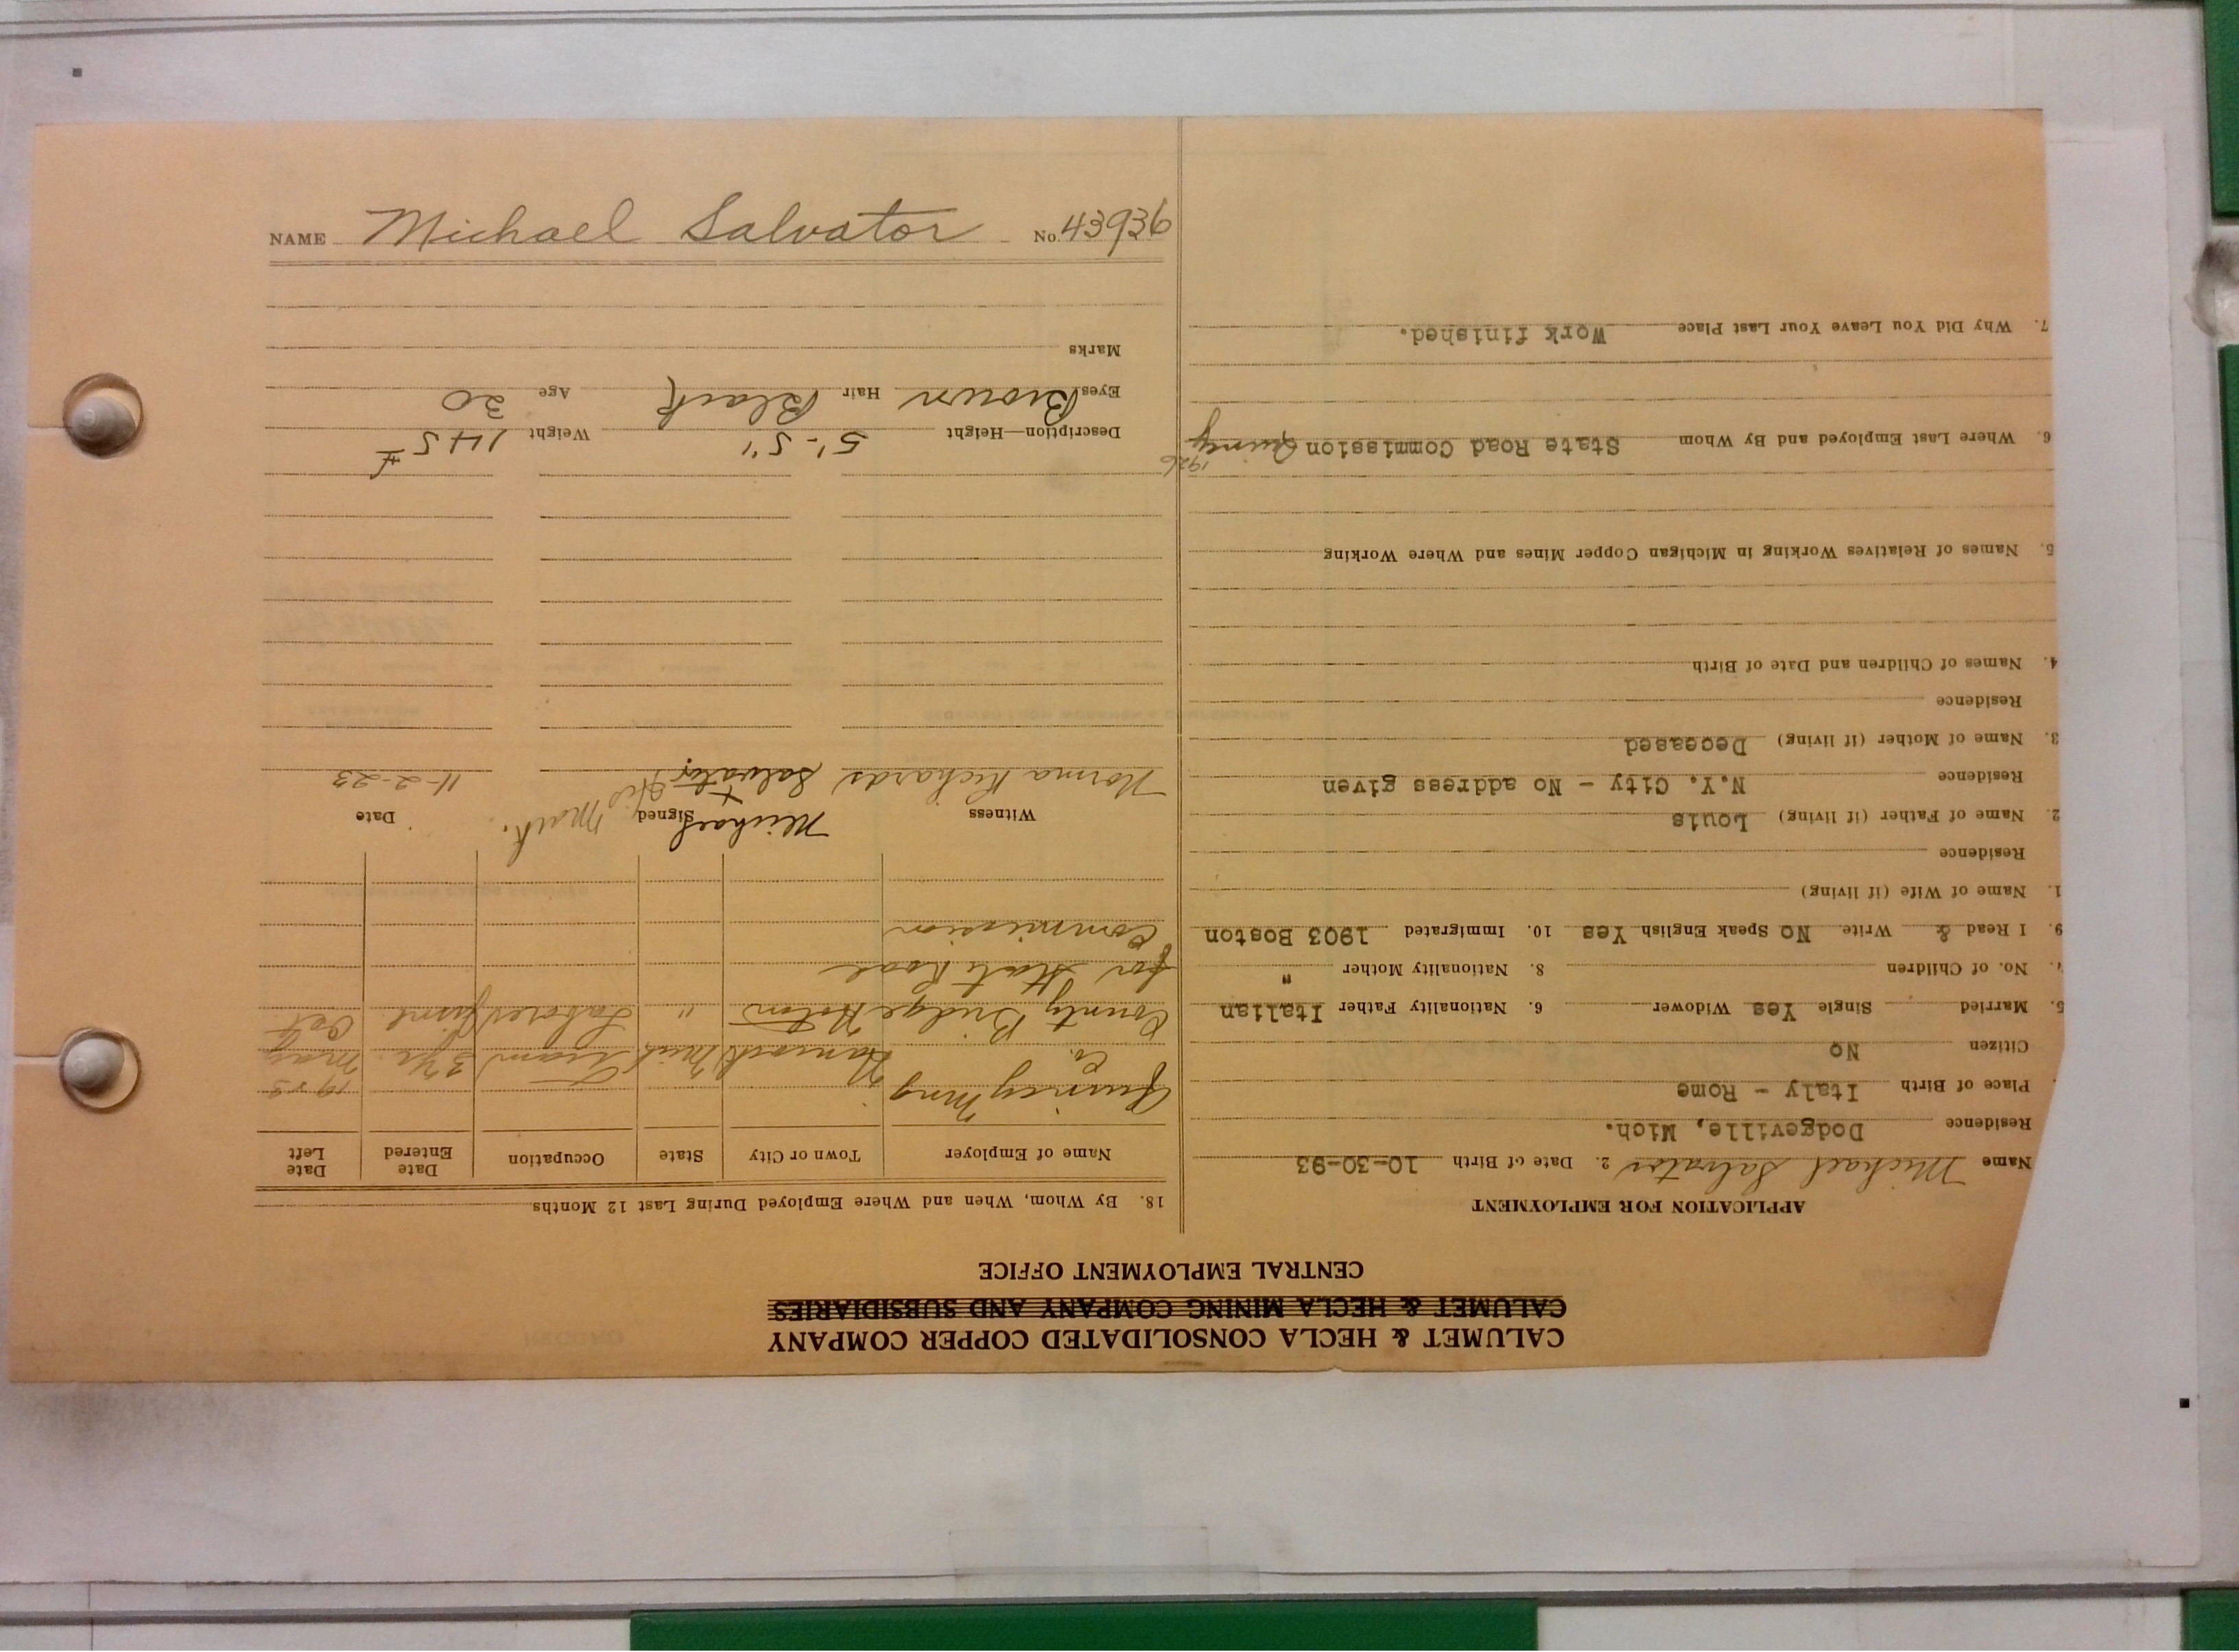 NAME Michael Salvator No. 43936
CALUMET & HECLA CONSOLIDATED COPPER COMPANY
CALUMET & HECLA MINING COMPANY AND SUBSIDIARIES
CENTRAL EMPLOYMENT OFFICE
APPLICATION FOR EMPLOYMENT
Name Michael Salvator 2. Date of Birth 10-30-93
Residence Dodgeville, Mich.
Place of Birth Italy - Rome
Citizen No
5. Married Single Yes Widower 6. Nationality Father Italian
7. No. of Children 8. Nationality Mother "
9. I Read & Write No Speak English Yes 10. Immigrated 1903 Boston
1. Name of Wife (if living)
Residence
2. Name of Father (if living) Louis
Residence N.Y. City - No address given
3. Name of Mother (if living) Deceased
Residence
4. Names of Children and Date of Birth
5. Names of Relatives Working in Michigan Copper Mines and Where Working
1926
6. Where Last Employed and By Whom State Road Commission Quincy
7. Why Did You Leave Your Last Place Work finished.
18. By Whom, When and Where Employed During Last 12 Months
Name of Employer Town or City State Occupation Date Entered Date Left
Quincy Mng Co. Hancock Mich Tram 3 yrs. 1923 May
County Bridge " Laborer June Oct
for State Road
Commission
Witness Signed Date
Norma Richards Michael Salvator His x Mark. 11-2-23
Description—Height 5'-5" Weight 145 ±
Eyes Brown Hair Black Age 30
Marks